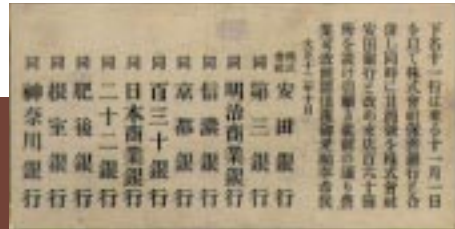 下名十一行は來る十一月一日
を以て株式會社保善銀行と合
併し同時に其商號を株式會社
安田銀行と改め本支店百六十箇
所を設け
大正十二年十月
株式會社 安田銀行
同 第三銀行
同 明治商業銀行
同 信濃銀行
同 京都銀行
同 百三十銀行
同 日本商業銀行
同 二十二銀行
同 肥後銀行
同 根室銀行
同 神奈川銀行